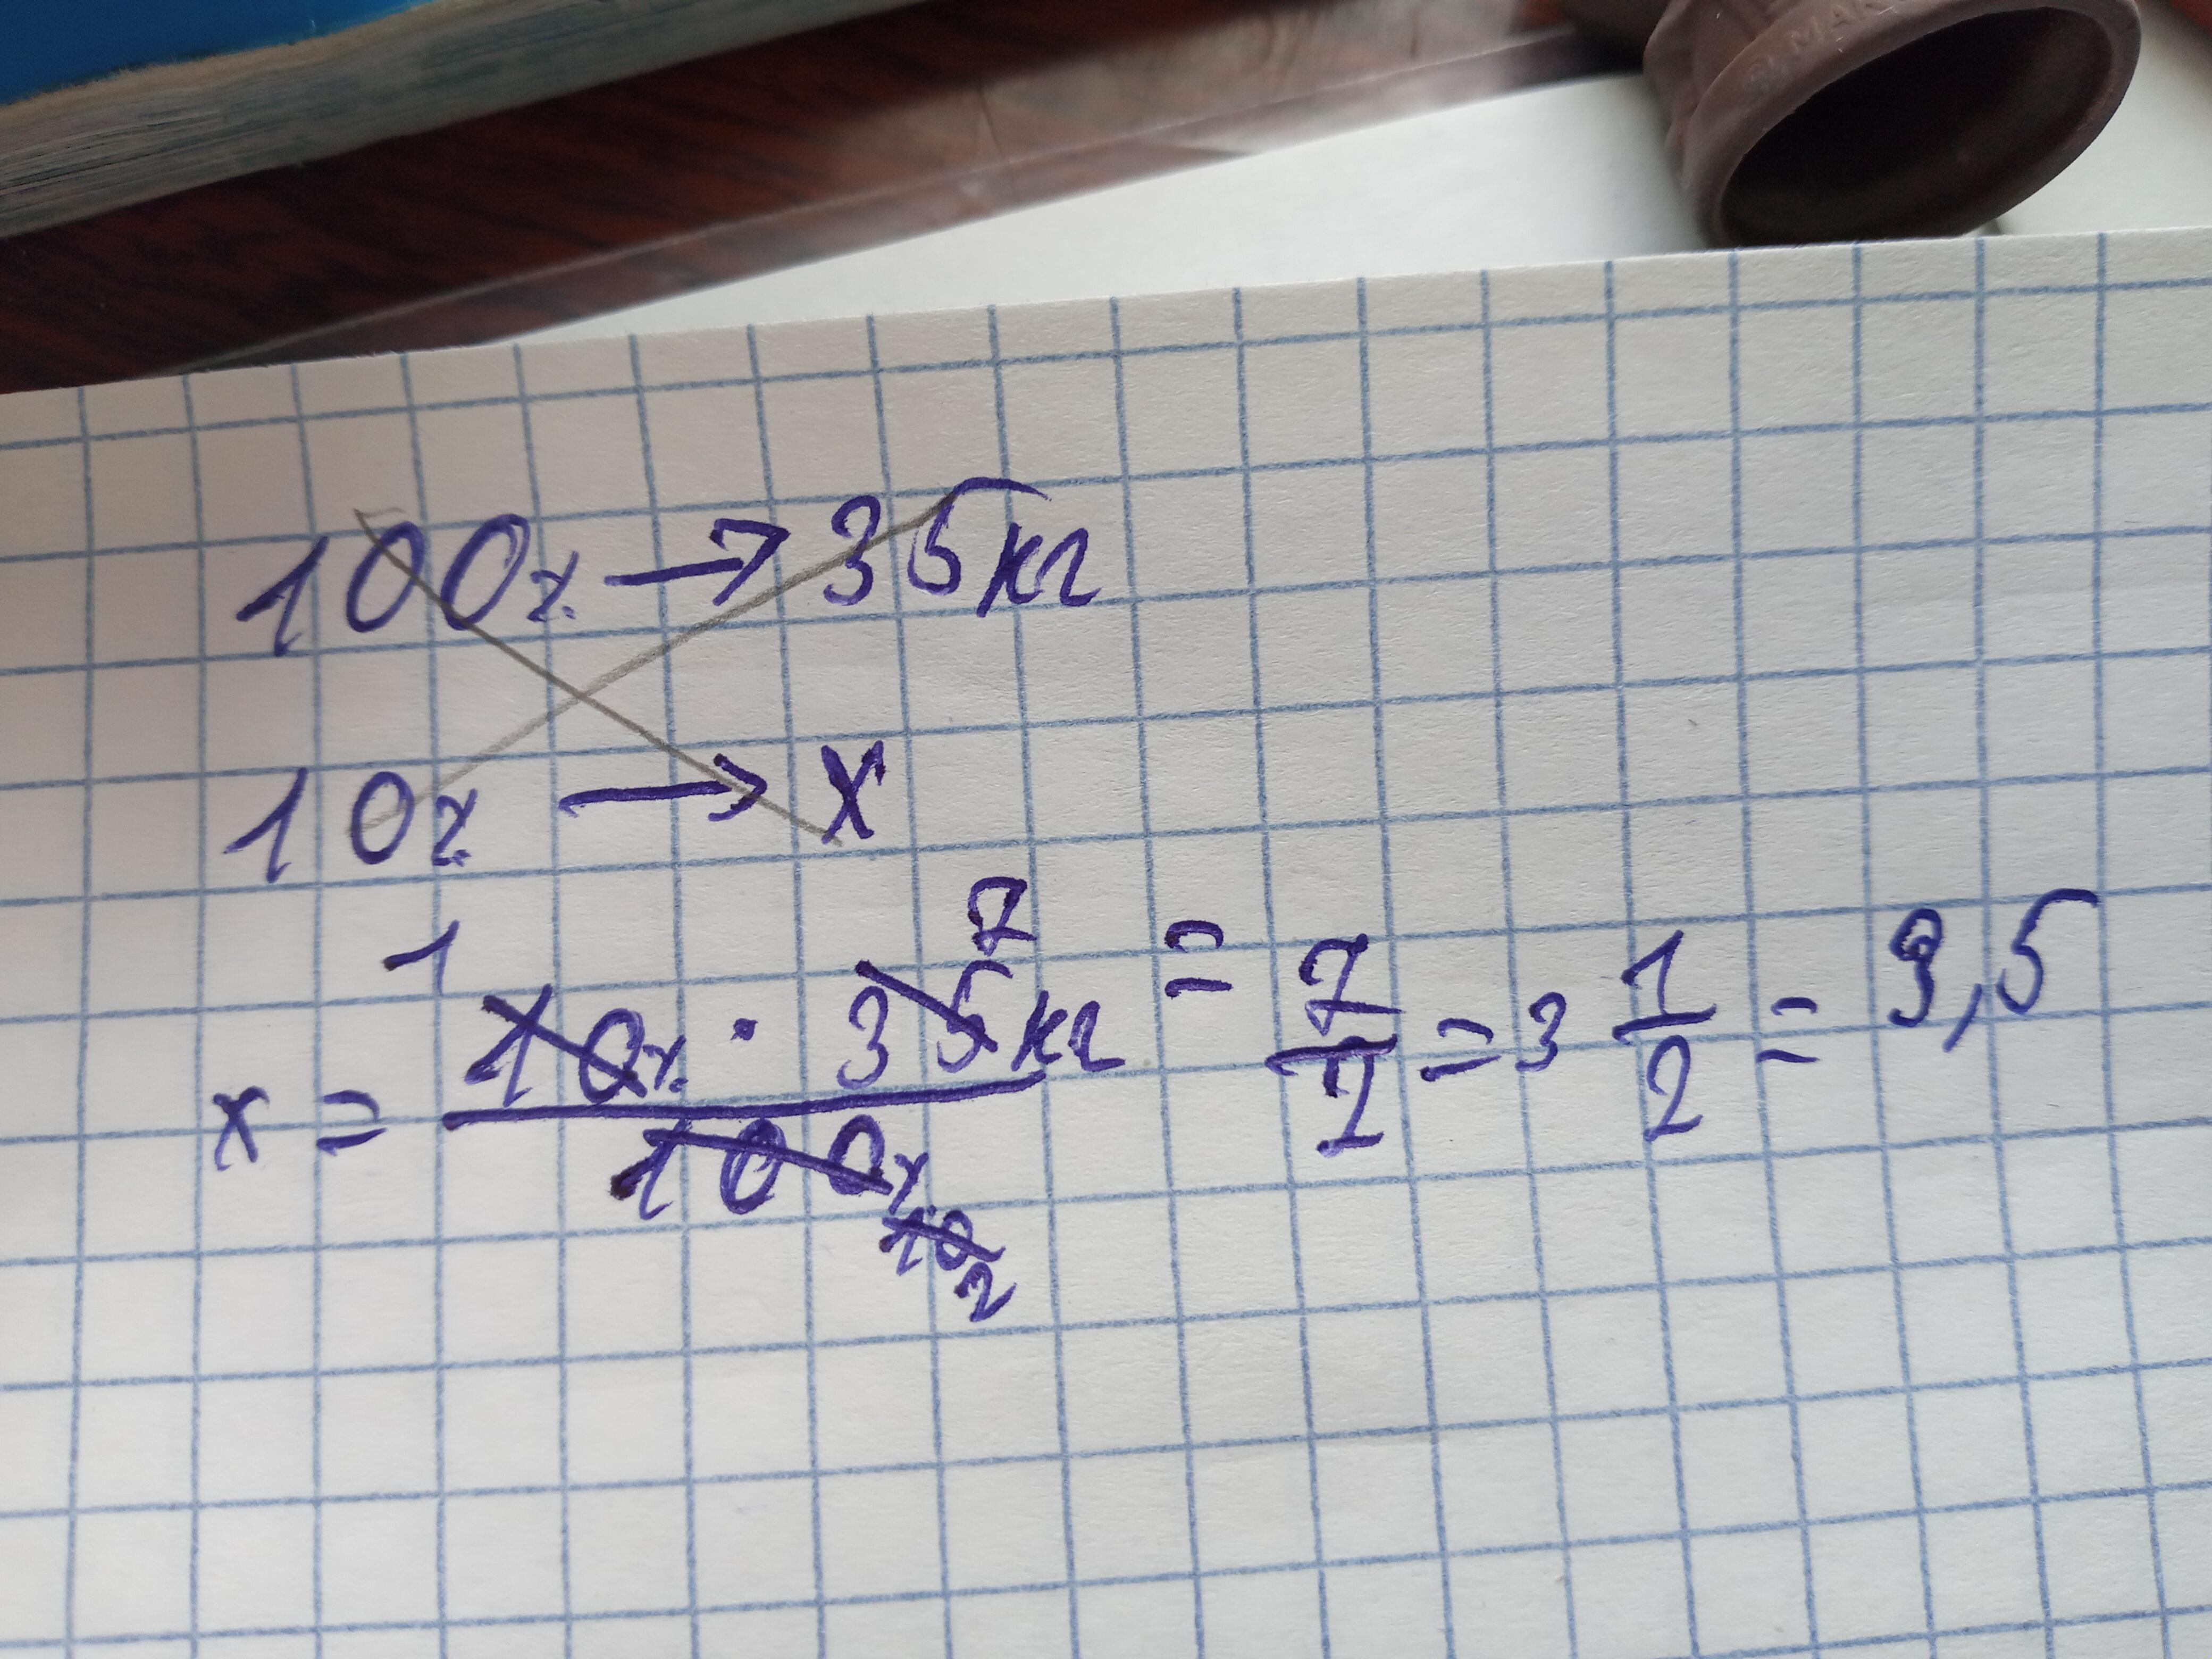 100% → 35кг
10% → x
x = 10% · 35кг / 100% = 7/2 = 3 1/2 = 3,5
1 7
10
2